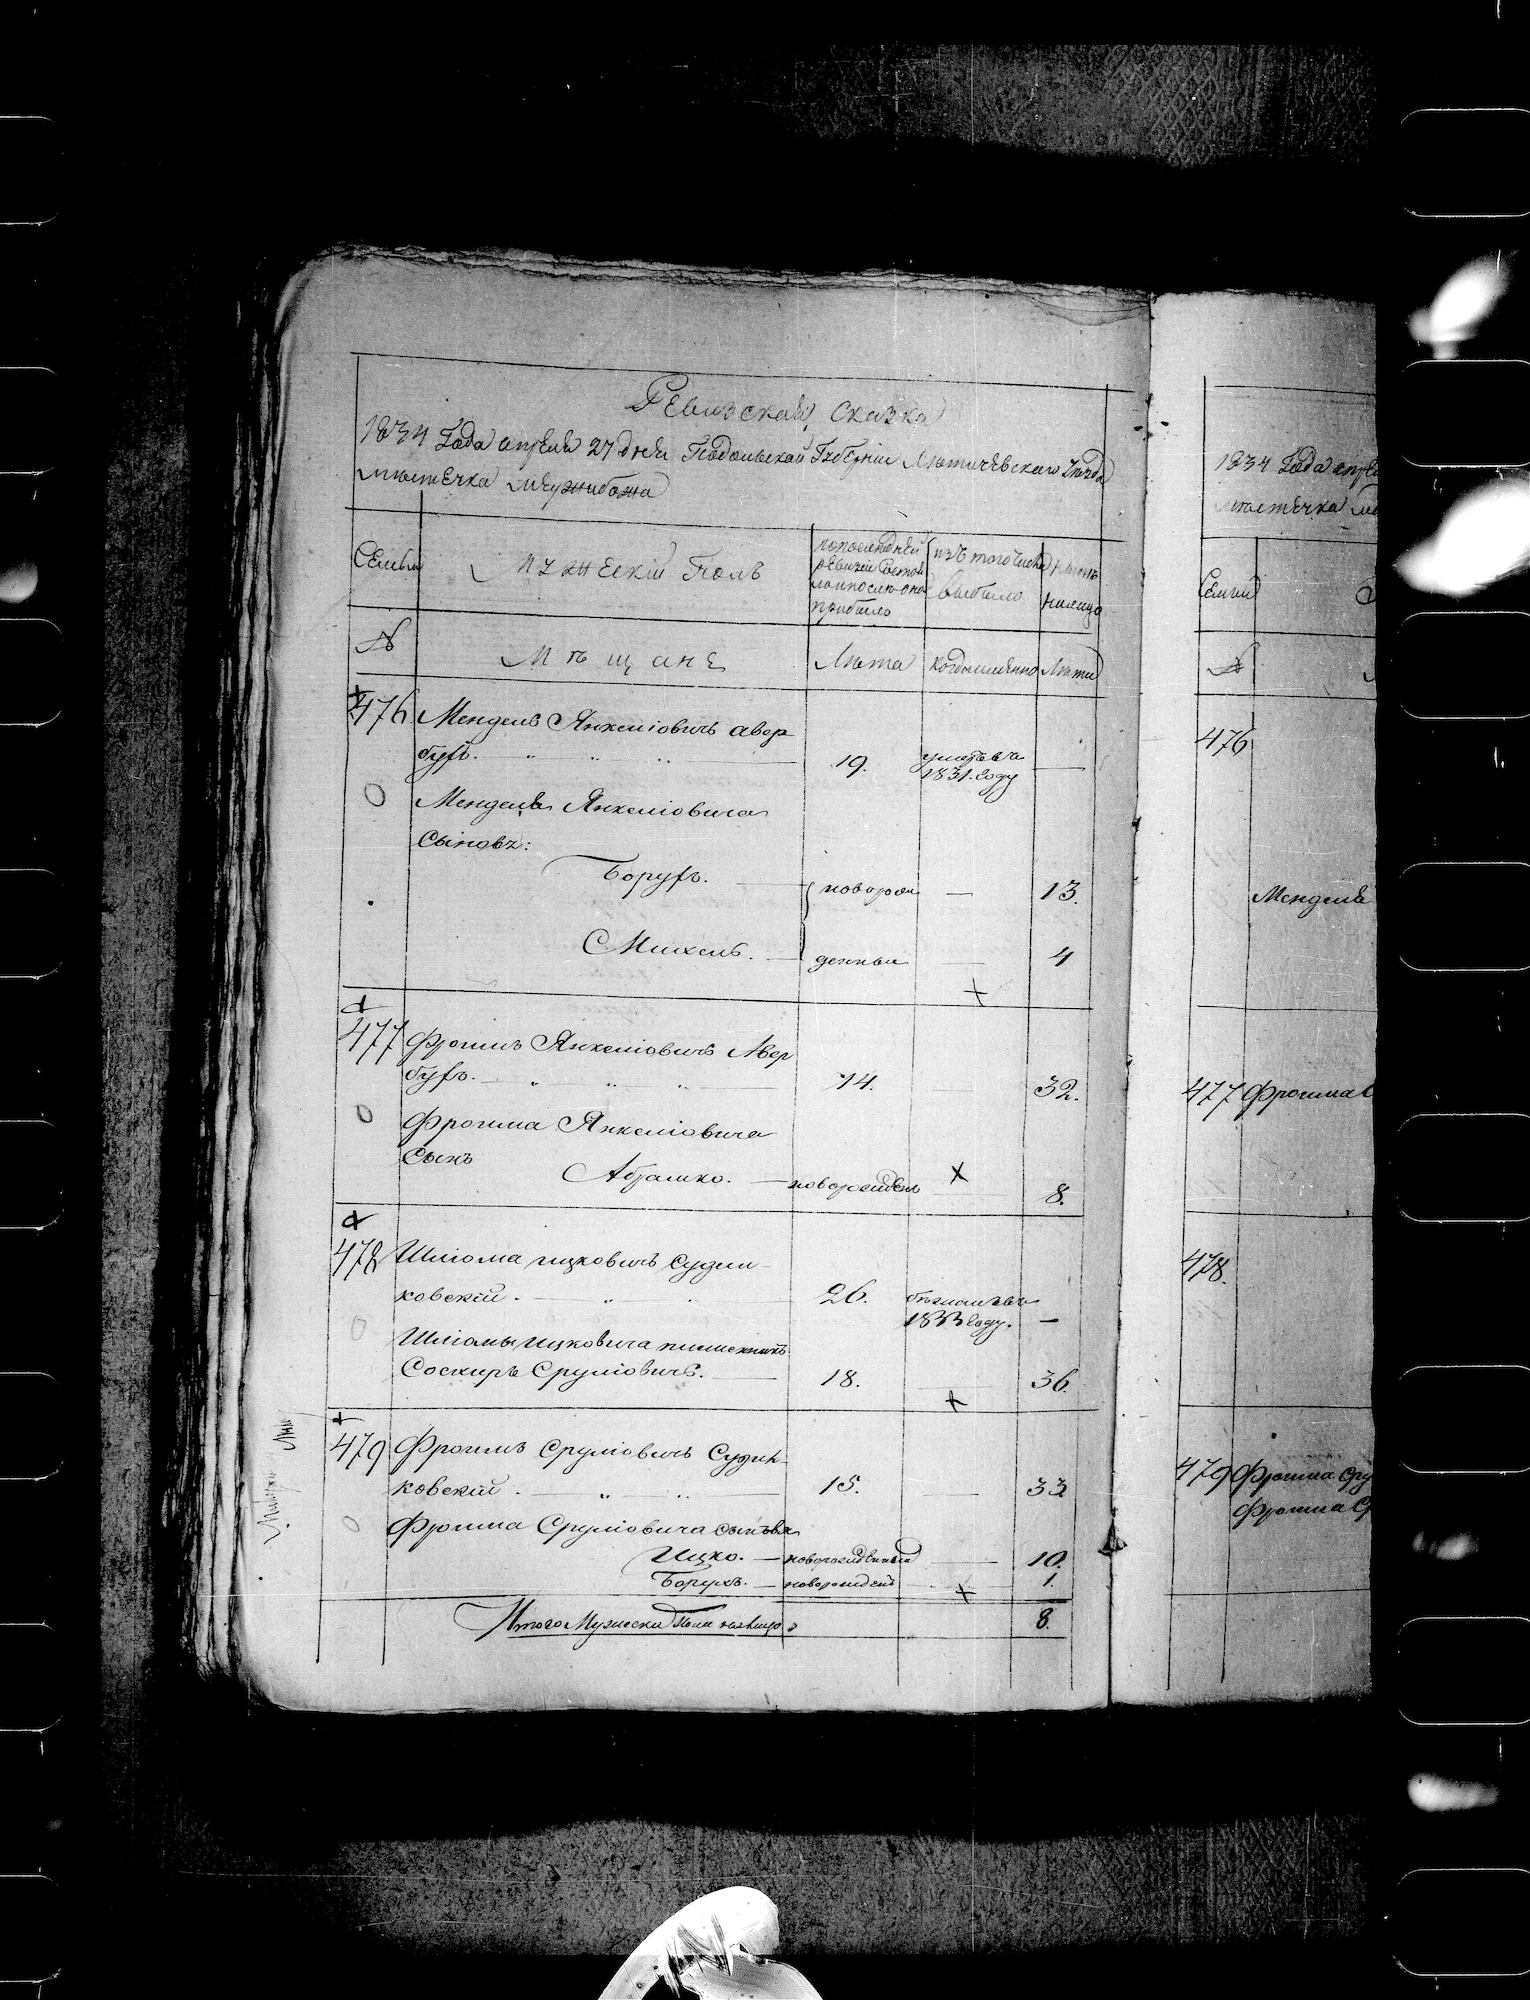 Ревизская сказка
1834 Года апреля 27 дня Подольской Губернiи Летичевскаго Уезда
местечка Межибожа
Семьи
Мужескiй Полъ
По последней ревизiи состояло и после оной прибыло
изъ того числа выбыло
ныне на лицо
№
Мещане
Лета
когда именно
Лета
476
Мендель Янкелiовичъ Авер
бухъ.
19.
умеръ въ
1831. Году
—
Менделя Янкелiовича
Сыновъ:
Борухъ. — новорож — 13.
Михель. — денные — 4
477
Фроимъ Янкелiовичъ Авер
бухъ. — 14. — 32.
Фроима Янкелiовича
Сынъ
Абрамко. — новорожден — 8.
478
Шлiома Ицковичъ Судил-
ковскiй. — 26.
1833 Году. —
Шлiомы Ицковича племенникъ
Срулiовичъ. — 18. — 36.
479
Фроимъ Срулiовичъ Судил-
ковскiй. — 15. — 33
Фроима Срулiовича сыновья
Ицко. — новорожденный — 10.
Борухъ. — новорожденъ — 1.
Итого Мужеска Пола на лицо 8.
1834 Года апре
местечка ме
Семьи
№
476
Менделя
477 Фроима
478.
479 Фроима Сру
Фроима Ср